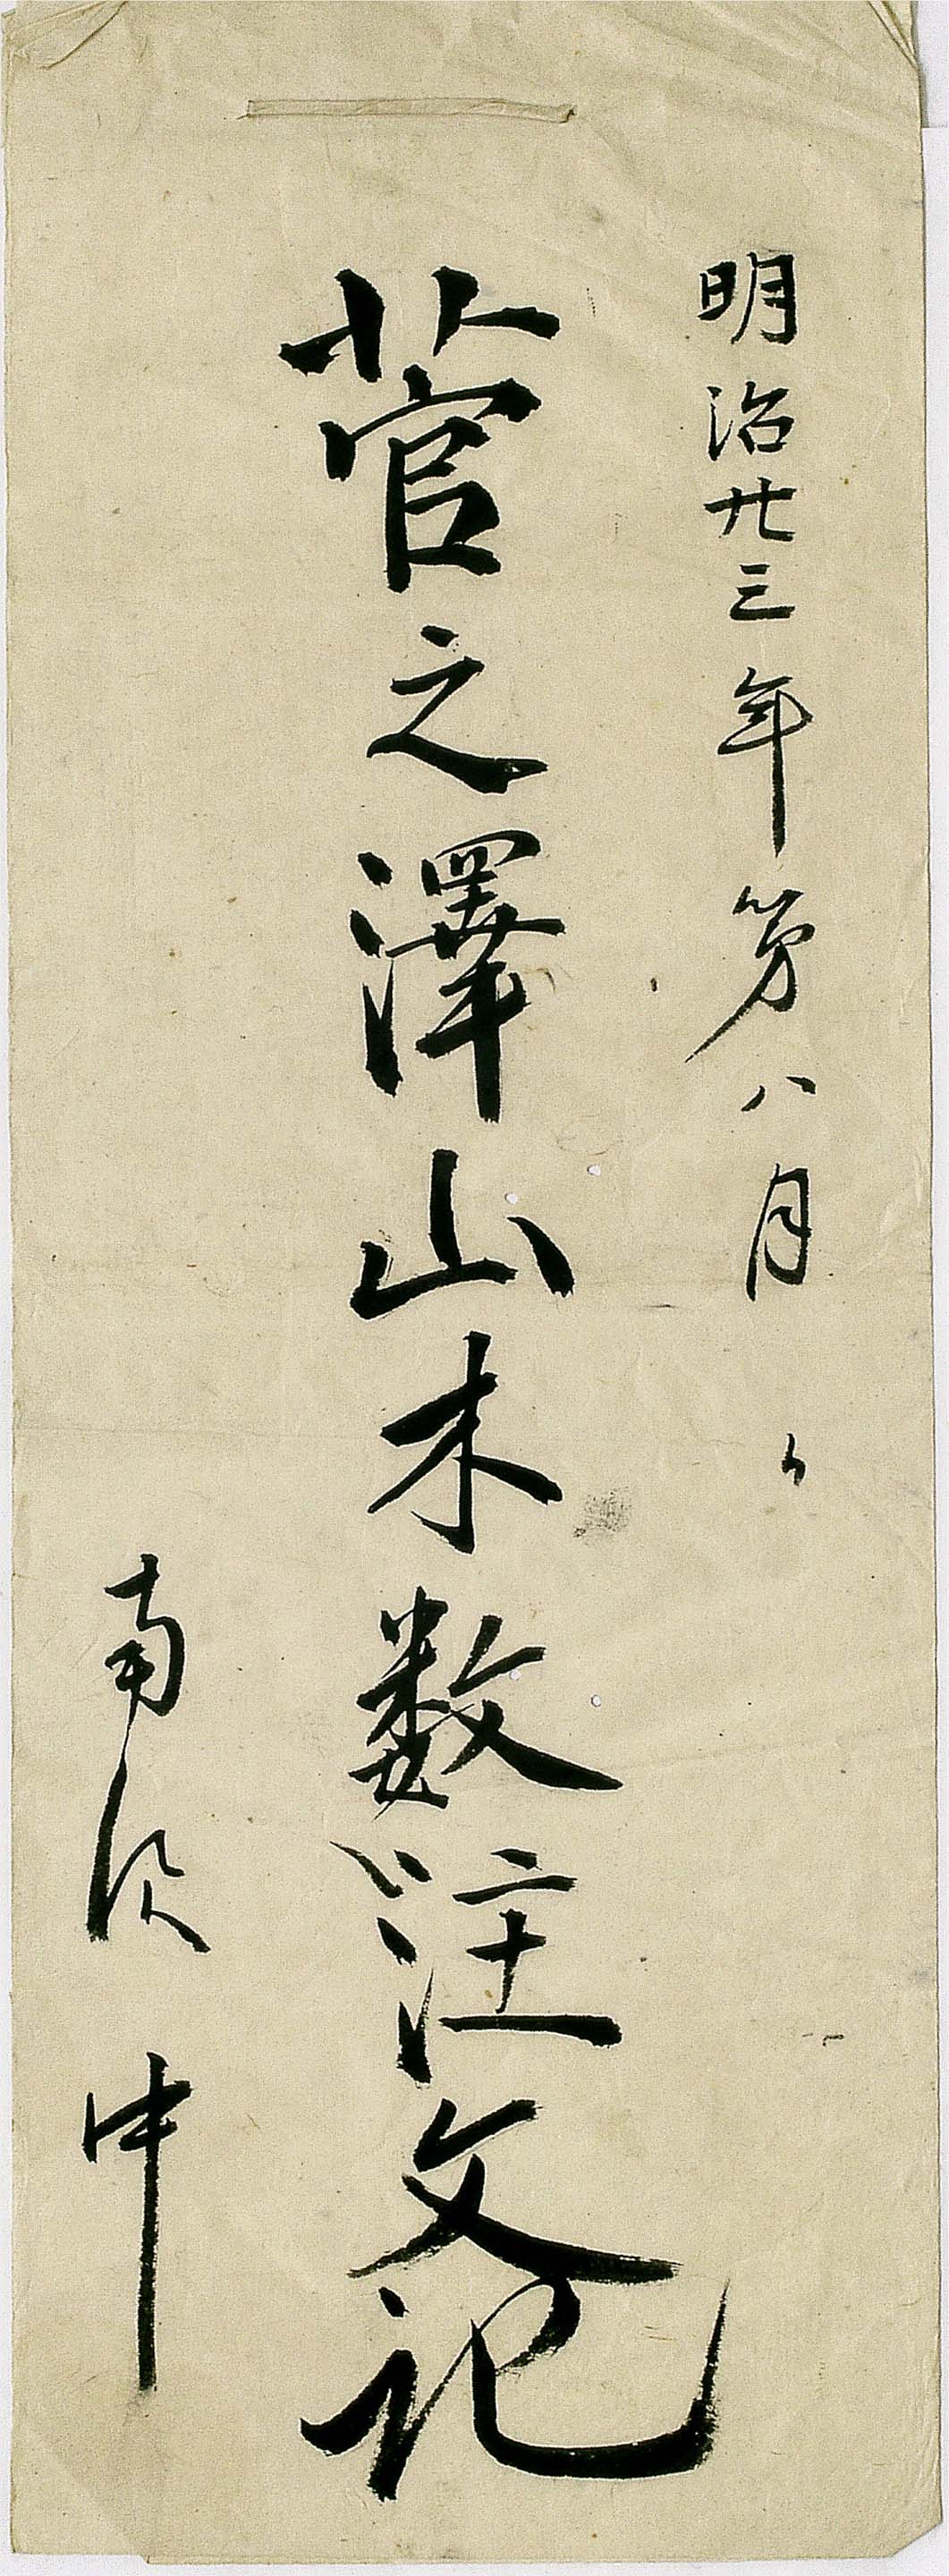 明治廿三年第八月
菅之澤山木数注文記
南中